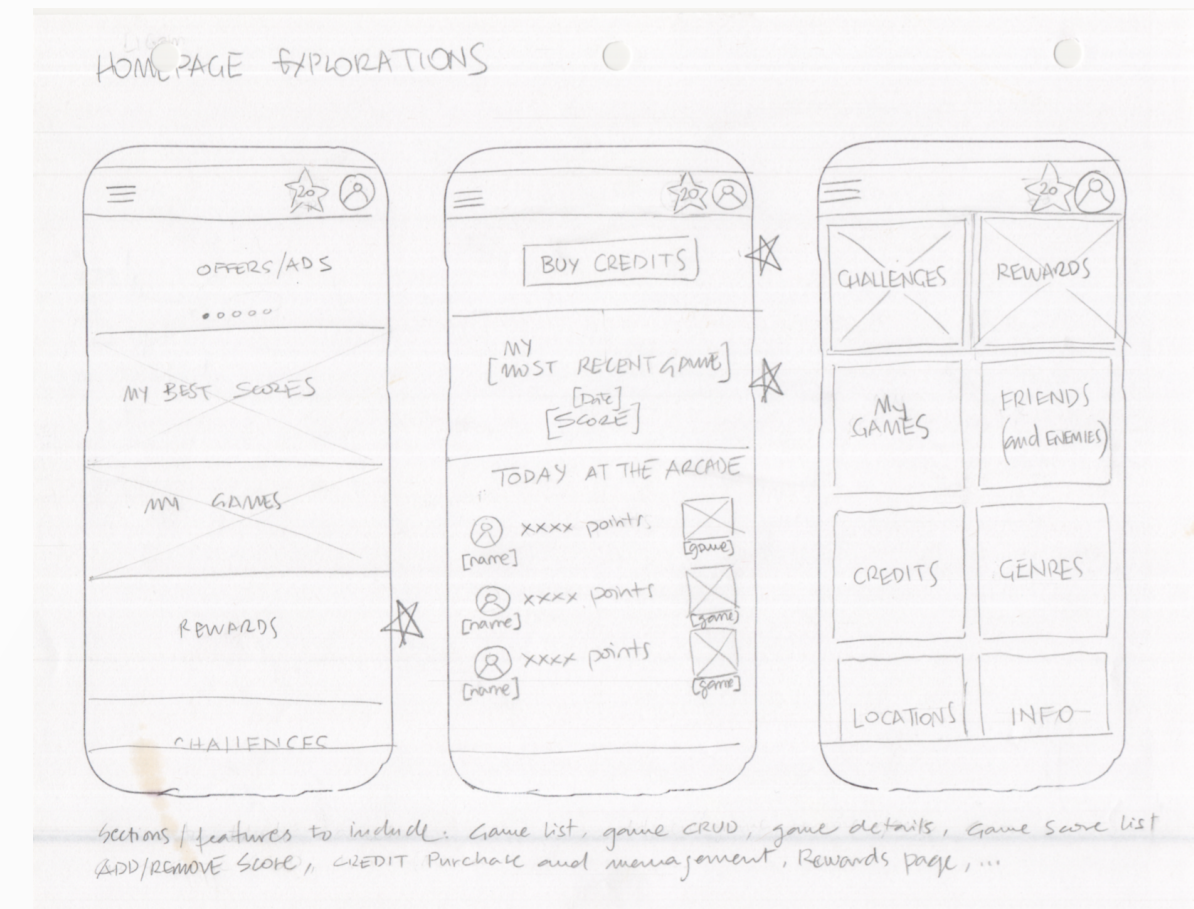 HOMEPAGE EXPLORATIONS
20
OFFERS/ADS
MY BEST SCORES
MY GAMES
REWARDS
CHALLENGES
20
BUY CREDITS
MY
[MOST RECENT GAME]
[Date]
[SCORE]
TODAY AT THE ARCADE
xxxx points.
[name] [game]
xxxx points
[name] [game]
xxxx points
[name] [game]
20
CHALLENGES REWARDS
My GAMES
FRIENDS
(and ENEMIES)
CREDITS GENRES
LOCATIONS INFO
Sections/features to include: Game list, game CRUD, game details, Game Score list
ADD/REMOVE SCORE, CREDIT Purchase and management, Rewards page, ...